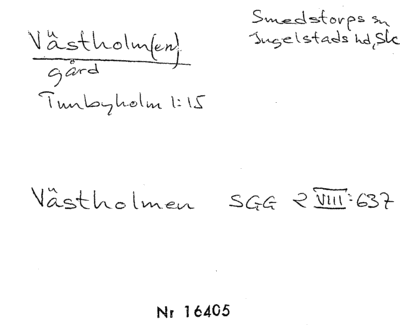 Västholm[en]
Smedstorps sn
Ingelstads hd, Sk
gård
Tunbyholm 1:15
Västholmen SGG 2 VIII:637
Nr 16405